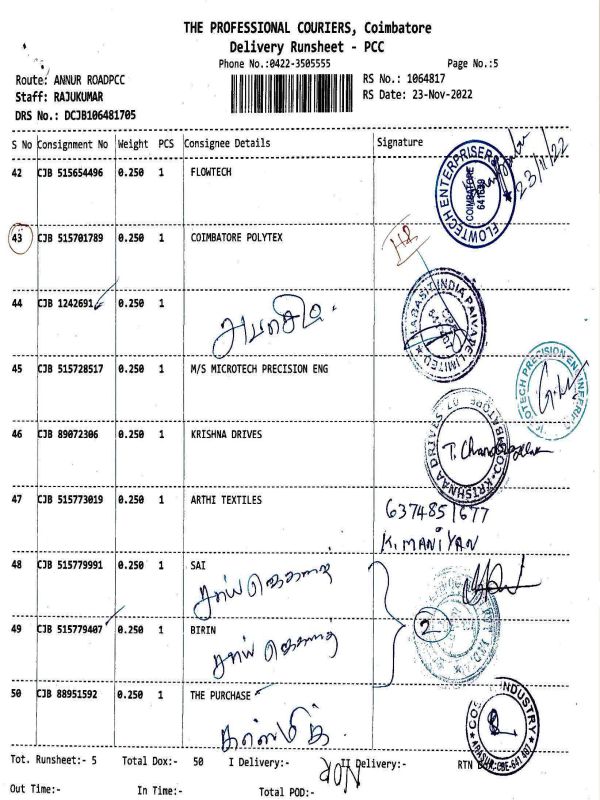 THE PROFESSIONAL COURIERS, Coimbatore
Delivery Runsheet - PCC
Phone No.:0422-3505555 Page No.:5
Route: ANNUR ROADPCC RS No.: 1064817
Staff: RAJUKUMAR RS Date: 23-Nov-2022
DRS No.: DCJB106481705
S No Consignment No Weight PCS Consignee Details Signature
42 CJB 515654496 0.250 1 FLOWTECH
FLOWTECH ENTERPRISES COIMBATORE 23/11/22
43 CJB 515701789 0.250 1 COIMBATORE POLYTEX
44 CJB 1242691 0.250 1
HABASIT INDIA PRIVATE LIMITED
45 CJB 515728517 0.250 1 M/S MICROTECH PRECISION ENG
46 CJB 89072306 0.250 1 KRISHNA DRIVES
KRISHNAA DRIVES
47 CJB 515773019 0.250 1 ARTHI TEXTILES
6374851677
K.MANIYAN
48 CJB 515779991 0.250 1 SAI
49 CJB 515779407 0.250 1 BIRIN
2
50 CJB 88951592 0.250 1 THE PURCHASE
Tot. Runsheet:- 5 Total Dox:- 50 I Delivery:- II Delivery:-
Out Time:- In Time:- Total POD:-